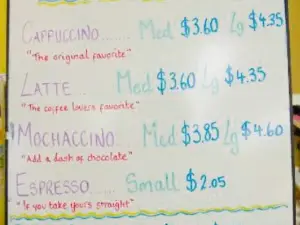 CAPPUCCINO....... Med $3.60 Lg $4.35
"The original favorite"
LATTE... Med $3.60 Lg $4.35
"The coffee lovers favorite"
MOCHACCINO... Med $3.85 Lg $4.60
"Add a dash of chocolate"
ESPRESSO...... Small $2.05
"If you take yours straight"